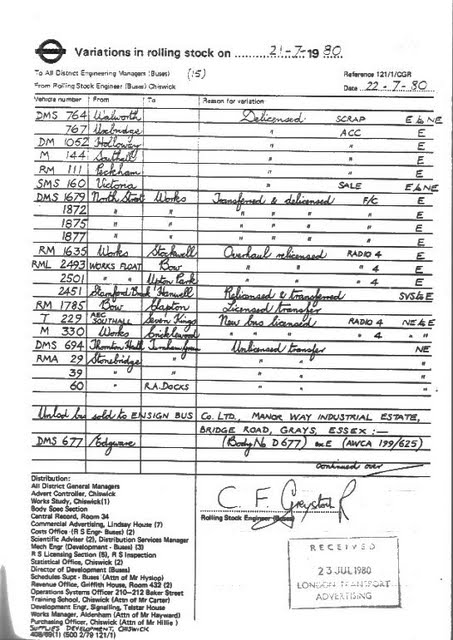 Variations in rolling stock on 21-7-1980
To All District Engineering Managers (Buses) (15) Reference 121/1/CGR
From Rolling Stock Engineer (Buses) Chiswick Date 22-7-80
Vehicle number From To Reason for variation
DMS 764 Walworth Delicensed SCRAP E & NE
767 Uxbridge " ACC E
DM 1052 Holloway " E
M 144 Southall " E
RM 111 Peckham " E
SMS 160 Victoria " SALE E & NE
DMS 1679 North Street Works Transferred & delicensed F/C E
1872 " " " " " " E
1875 " " " " " " E
1877 " " " " " " E
RM 1635 Works Stockwell Overhaul relicensed RADIO 4 E
RML 2493 WORKS FLOAT Bow " " " 4 E
2501 " " Upton Park " " " 4 E
2451 Stamford Brook Hanwell Relicensed & transferred SYS & E
RM 1785 Bow Clapton Licensed transfer
T 229 AEC SOUTHALL Seven Kings New bus licensed RADIO 4 NE & E
M 330 Works Cricklewood " " " " 4 "
DMS 694 Thornton Heath Turnham Green Unlicensed transfer NE
RMA 29 Stonebridge " " " "
39 " " " " "
60 " R.A. DOCKS " " "
Unlcd bus sold to ENSIGN BUS Co. LTD., MANOR WAY INDUSTRIAL ESTATE,
BRIDGE ROAD, GRAYS, ESSEX :—
DMS 677 Edgware (Body No D 677) ex E (AWCA 199/625)
continued over
Distribution:
All District General Managers
Advert Controller, Chiswick
Works Study, Chiswick (1)
Body Spec Section
Central Record, Room 34
Commercial Advertising, Lindsay House (7)
Costs Office (R S Engr- Buses) (2)
Scientific Adviser (2), Distribution Services Manager
Mech Engr (Development - Buses) (3)
R S Licensing Section (5), R S Inspection
Statistical Office, Chiswick (2)
Director of Development (Buses)
Schedules Supt - Buses (Attn of Mr Hyslop)
Revenue Office, Griffith House, Room 432 (2)
Operations Systems Officer 210–212 Baker Street
Training School, Chiswick (Attn of Mr Carter)
Development Engr, Signalling, Telstar House
Works Manager, Aldenham (Attn of Mr Hayward)
Purchasing Officer, Chiswick (Attn of Mr Hillie)
SUPPLIES DEVELOPMENT, CHISWICK
408/69(1) (500 2/79 121/1)
C F Greystock
Rolling Stock Engineer (Buses)
RECEIVED
23 JUL 1980
LONDON TRANSPORT
ADVERTISING